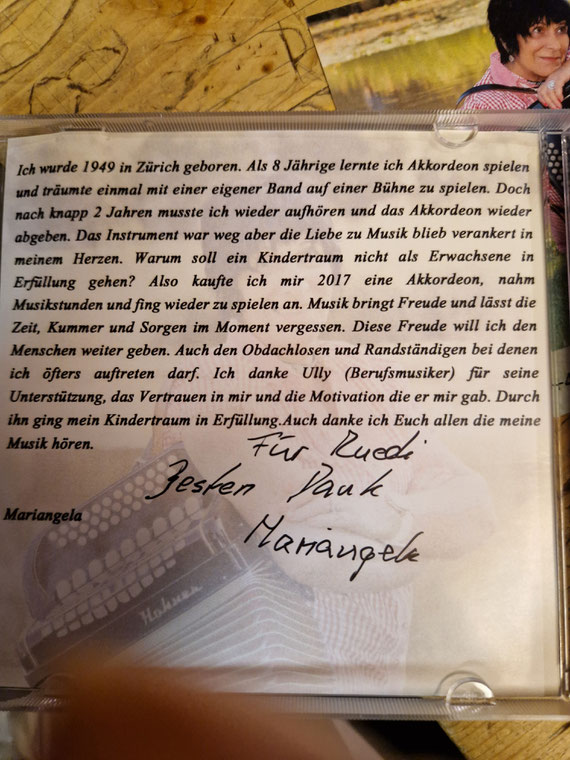 Ich wurde 1949 in Zürich geboren. Als 8 Jährige lernte ich Akkordeon spielen
und träumte einmal mit einer eigener Band auf einer Bühne zu spielen. Doch
nach knapp 2 Jahren musste ich wieder aufhören und das Akkordeon wieder
abgeben. Das Instrument war weg aber die Liebe zu Musik blieb verankert in
meinem Herzen. Warum soll ein Kindertraum nicht als Erwachsene in
Erfüllung gehen? Also kaufte ich mir 2017 eine Akkordeon, nahm
Musikstunden und fing wieder zu spielen an. Musik bringt Freude und lässt die
Zeit, Kummer und Sorgen im Moment vergessen. Diese Freude will ich den
Menschen weiter geben. Auch den Obdachlosen und Randständigen bei denen
ich öfters auftreten darf. Ich danke Ully (Berufsmusiker) für seine
Unterstützung, das Vertrauen in mir und die Motivation die er mir gab. Durch
ihn ging mein Kindertraum in Erfüllung.Auch danke ich Euch allen die meine
Musik hören.
Für Ruedi
Besten Dank
Mariangela
Mariangela
Hohner